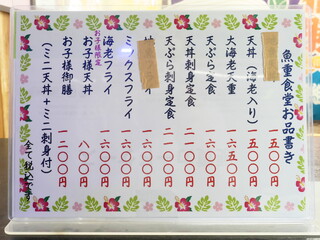 魚重食堂お品書き
天丼(海老入り) 一五〇〇円
大海老天重 一六五〇円
天ぷら定食 一六〇〇円
天丼刺身定食 二一〇〇円
天ぷら刺身定食 二一〇〇円
イ 一六〇〇円
ミックスフライ 一六〇〇円
海老フライ 一六〇〇円
お子様限定
お子様天丼 八〇〇円
お子様御膳 一二〇〇円
(ミニ天丼+ミニ刺身付)
全て税込です。